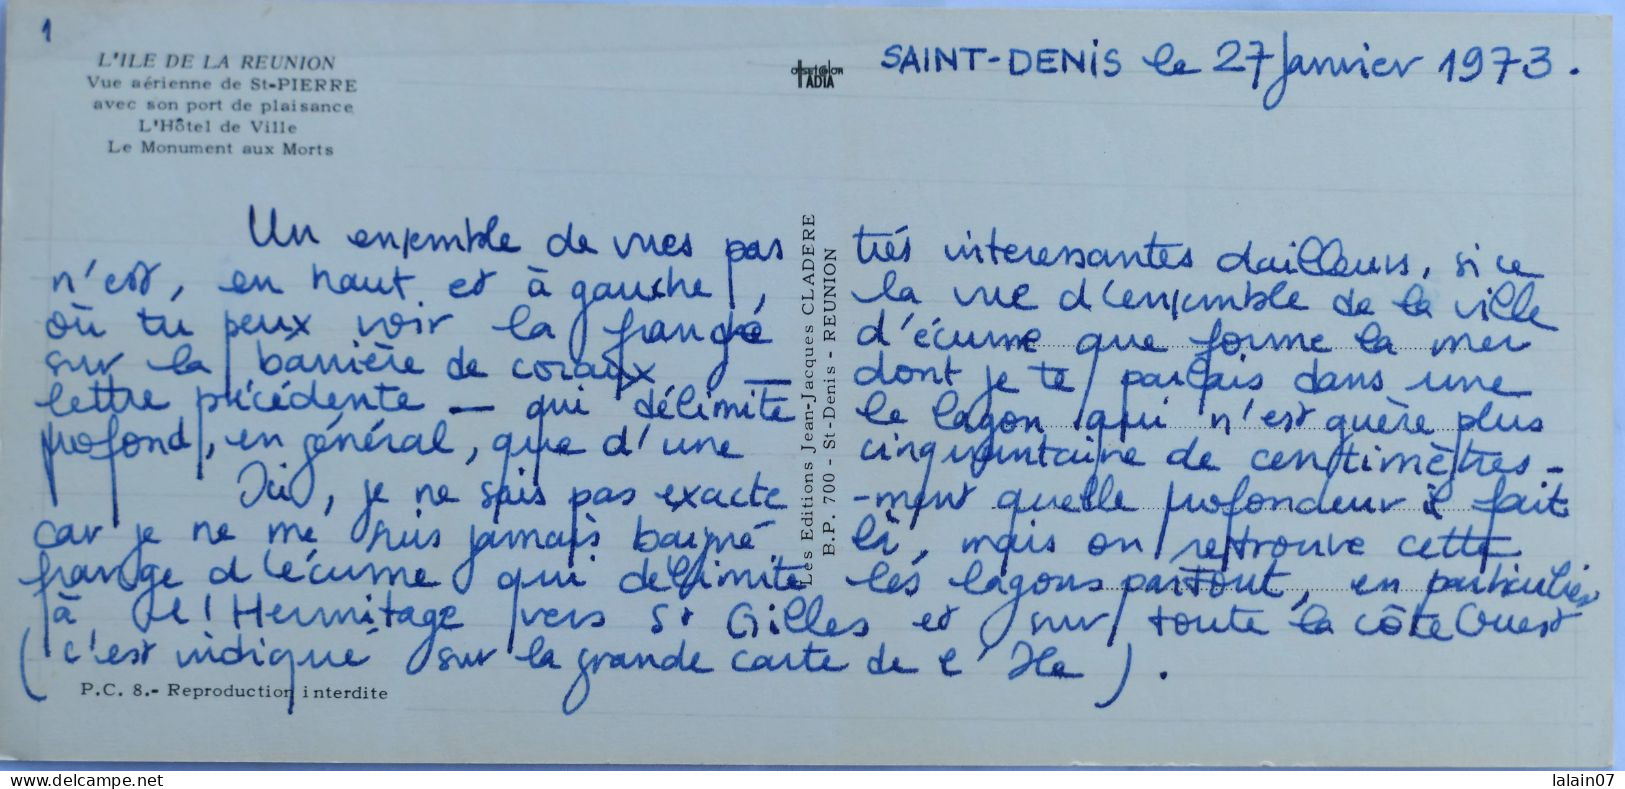 1
L'ILE DE LA REUNION
Vue aérienne de St-PIERRE
avec son port de plaisance
L'Hôtel de Ville
Le Monument aux Morts
offset color
TADIA
SAINT-DENIS le 27 Janvier 1973.
Les Editions Jean-Jacques CLADERE
B.P. 700 - St-Denis - REUNION
Un ensemble de vues pas très interessantes d'ailleurs, si ce
n'est, en haut et à gauche, la vue d'ensemble de la ville
où tu peux voir la frange d'écume que forme la mer
sur la barrière de coraux — dont je te parlais dans une
lettre précédente — qui délimite le lagon qui n'est guère plus
profond, en général, que d'une cinquantaine de centimètres -
Ici, je ne sais pas exacte -ment quelle profondeur il fait
car je ne me suis jamais baigné là, mais on retrouve cette
frange d'écume qui délimite les lagons partout, en particulier
à l'Hermitage vers St Gilles et sur toute la côte Ouest
(c'est indiqué sur la grande carte de l'Ile).
P.C. 8.- Reproduction interdite
www.delcampe.net
lalain07